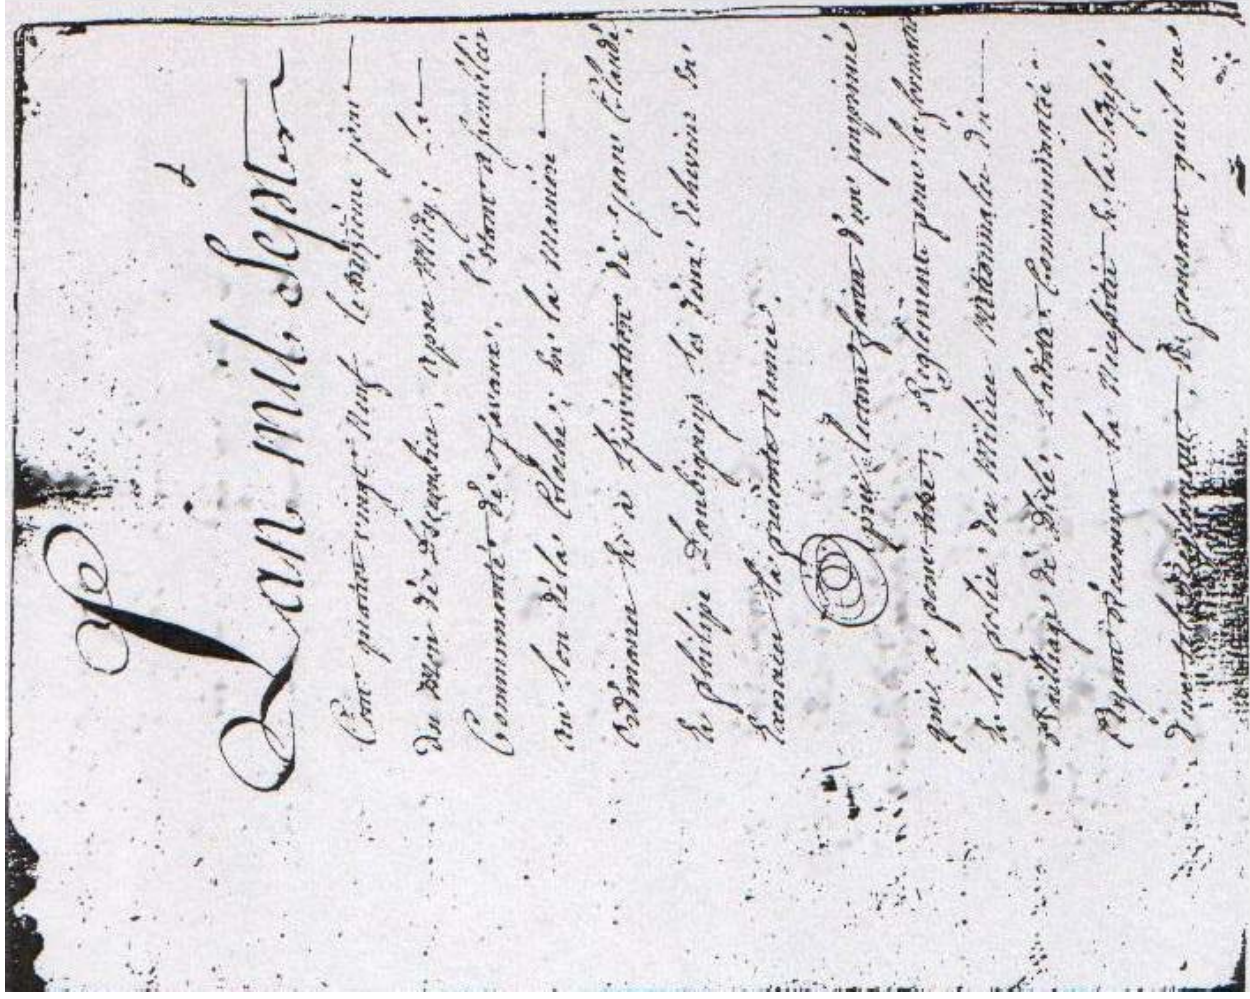 L'an mil, Sept
Cent quatre vingt Neuf Le douzième jour
du mois de Decembre, apres Midy; La
Communauté de Javané, s'etant assemblée
au Son de la Cloche; en la Maniere
ordinaire et à l'invitation de jean Claude
et philipe Daubigney les deux Echevins en
Exercice la presente année.
après lecture faite d'un imprimé
qui a pour titre; Reglements pour la formation
et la police des Milice Nationale du
Bailliage de Dole; Ladite Communauté
ayant Reconnue La Necessité et la Sagesse